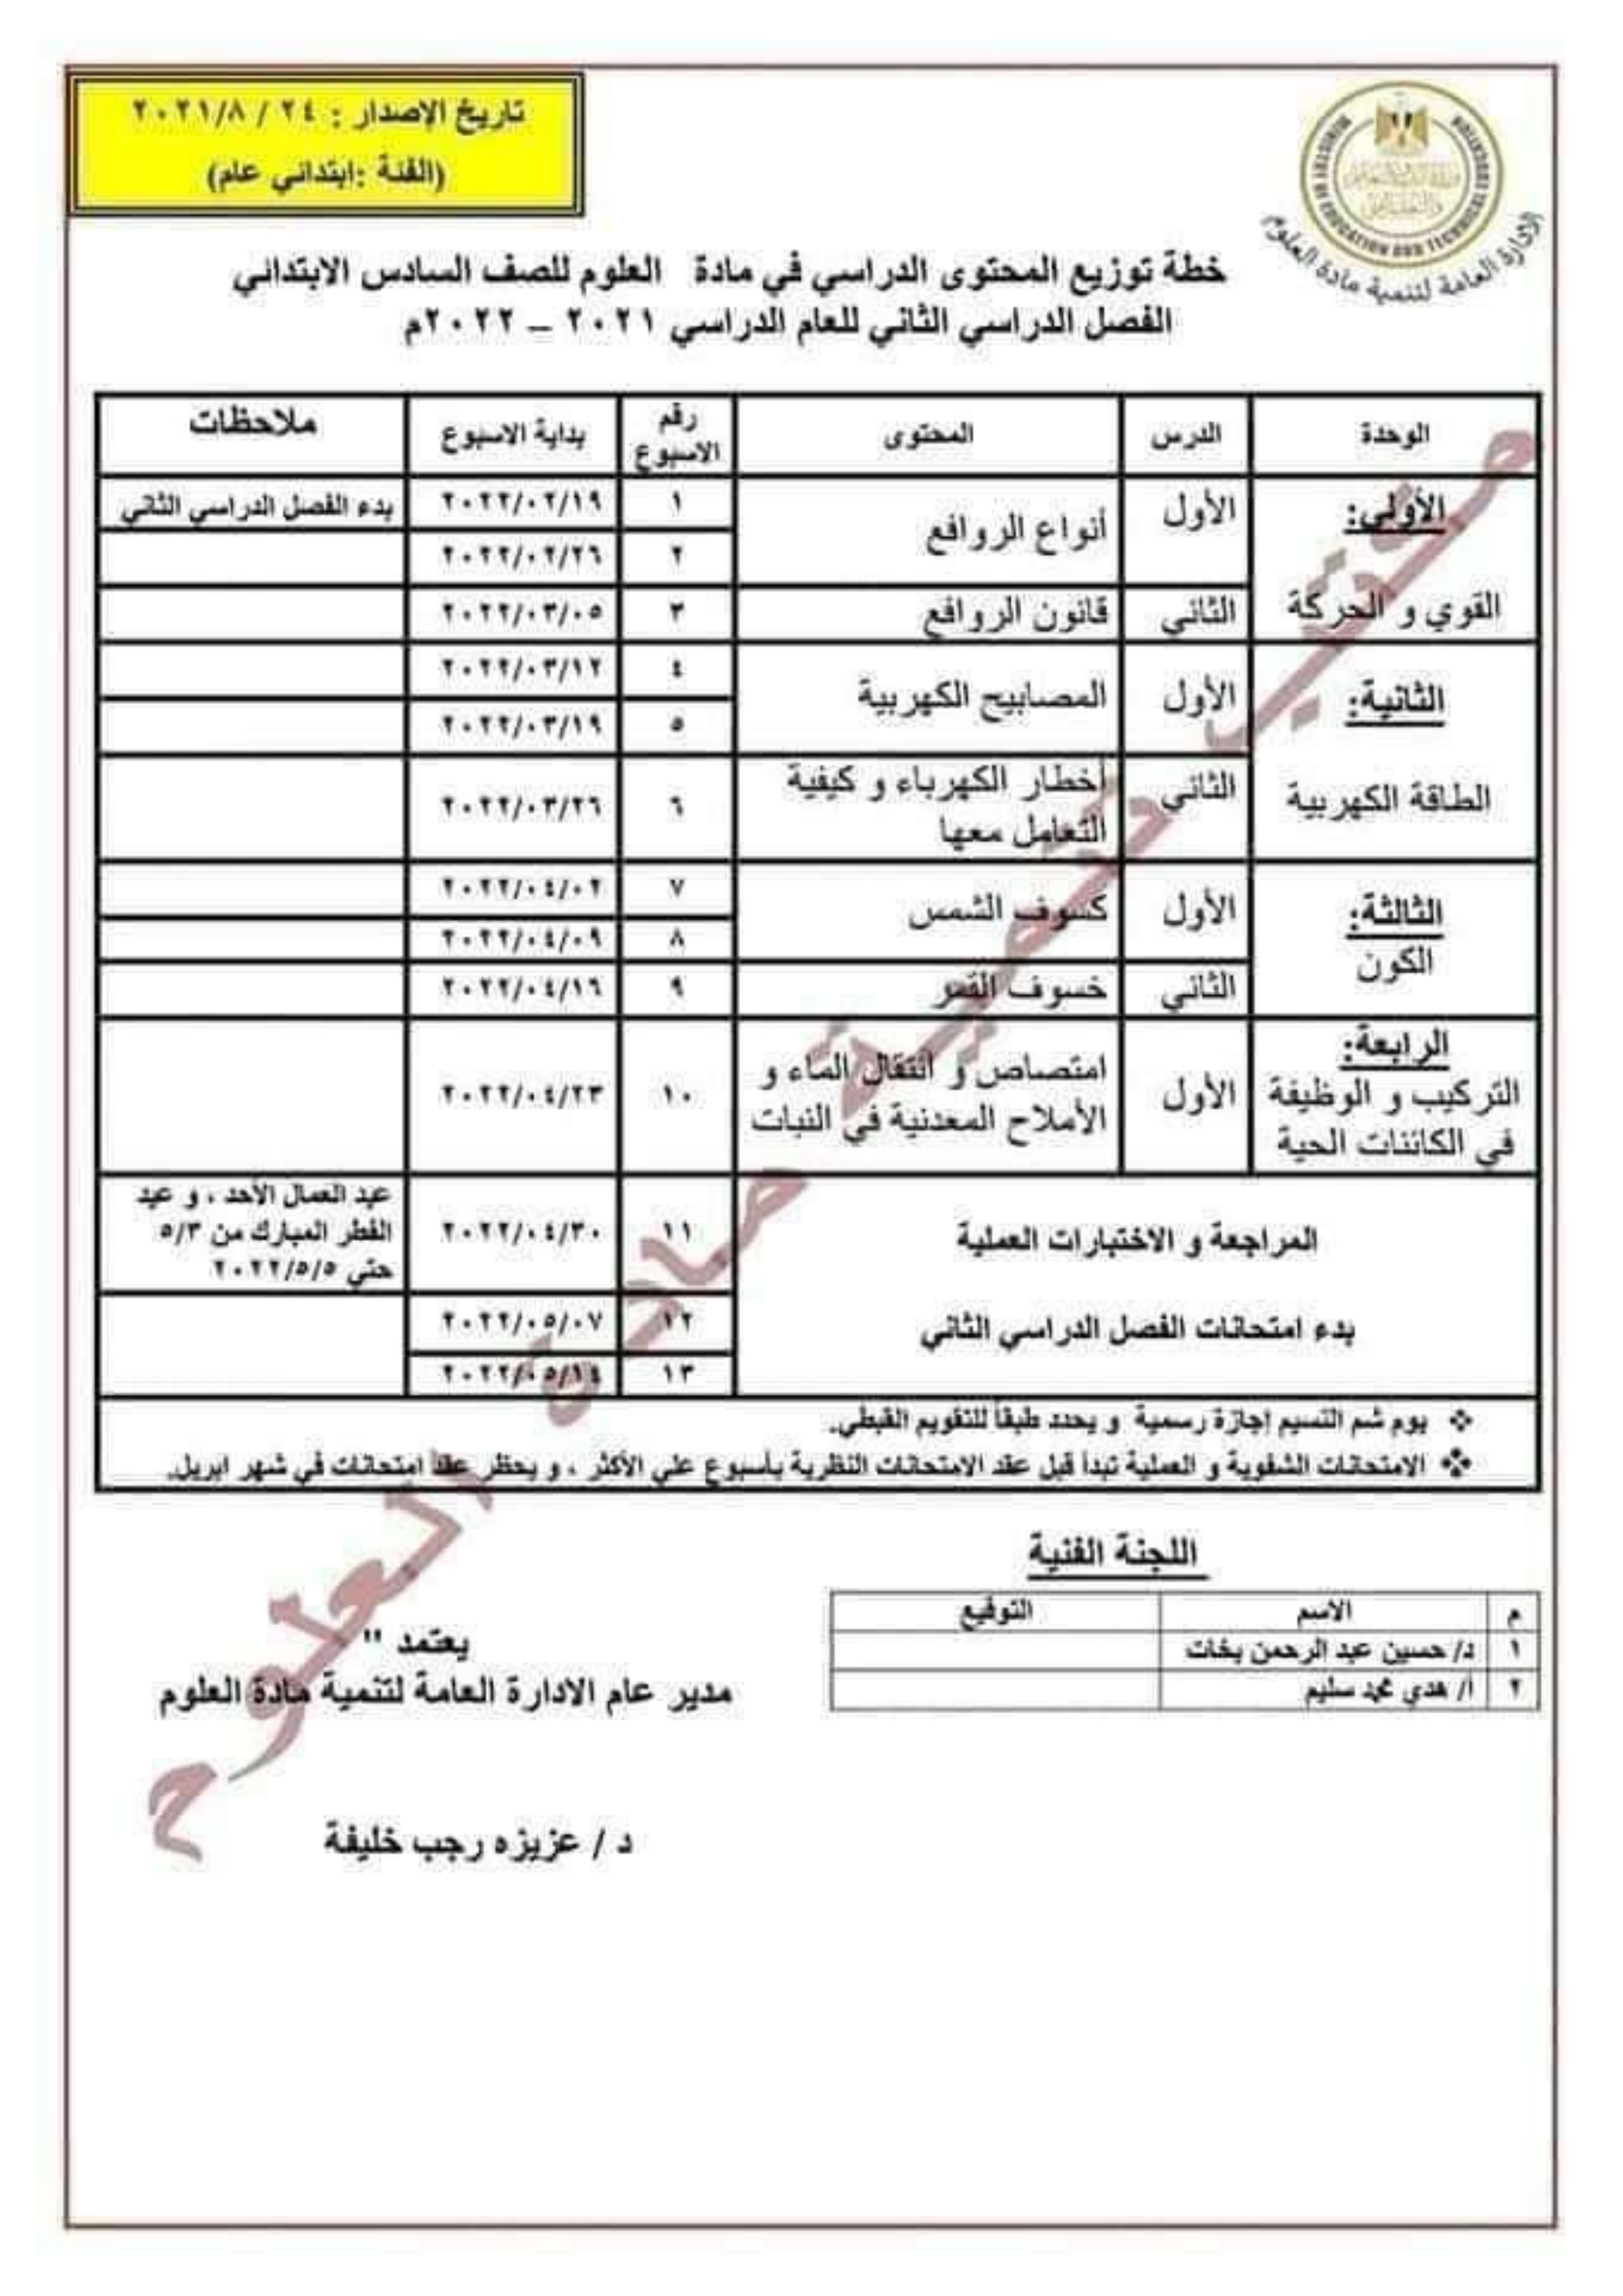 تاريخ الإصدار : ٢٤ / ٢٠٢١/٨
(الفئة :ابتدائي عام)
MINISTRY OF EDUCATION AND TECHNICAL EDUCATION
الإدارة العامة لتنمية مادة العلوم
خطة توزيع المحتوى الدراسي في مادة العلوم للصف السادس الابتدائي
الفصل الدراسي الثاني للعام الدراسي ٢٠٢١ – ٢٠٢٢م
الوحدة الدرس المحتوى رقم الاسبوع بداية الاسبوع ملاحظات
الأولي: الأول أنواع الروافع ١ ٢٠٢٢/٠٢/١٩ بدء الفصل الدراسي الثاني
٢ ٢٠٢٢/٠٢/٢٦
القوي و الحركة الثاني قانون الروافع ٣ ٢٠٢٢/٠٣/٠٥
الثانية: الأول المصابيح الكهربية ٤ ٢٠٢٢/٠٣/١٢
٥ ٢٠٢٢/٠٣/١٩
الطاقة الكهربية الثاني أخطار الكهرباء و كيفية
التعامل معها ٦ ٢٠٢٢/٠٣/٢٦
الثالثة: الأول كسوف الشمس ٧ ٢٠٢٢/٠٤/٠٢
الكون ٨ ٢٠٢٢/٠٤/٠٩
الثاني خسوف القمر ٩ ٢٠٢٢/٠٤/١٦
الرابعة:
التركيب و الوظيفة
في الكائنات الحية
الأول امتصاص و انتقال الماء و
الأملاح المعدنية في النبات ١٠ ٢٠٢٢/٠٤/٢٣
المراجعة و الاختبارات العملية ١١ ٢٠٢٢/٠٤/٣٠
عيد العمال الأحد ، و عيد
الفطر المبارك من ٥/٣
حتي ٢٠٢٢/٥/٥
بدء امتحانات الفصل الدراسي الثاني ١٢ ٢٠٢٢/٠٥/٠٧
١٣ ٢٠٢٢/٠٥/١٤
❖ يوم شم النسيم إجازة رسمية و يحدد طبقاً للتقويم القبطي.
❖ الامتحانات الشفوية و العملية تبدأ قبل عقد الامتحانات النظرية بأسبوع علي الأكثر ، و يحظر عقد امتحانات في شهر ابريل.
اللجنة الفنية
م الاسم التوقيع
١ د/ حسين عبد الرحمن بخات
٢ أ/ هدي محمد سليم
يعتمد "
مدير عام الادارة العامة لتنمية مادة العلوم
د / عزيزه رجب خليفة
مكتب تنمية مادة العلوم